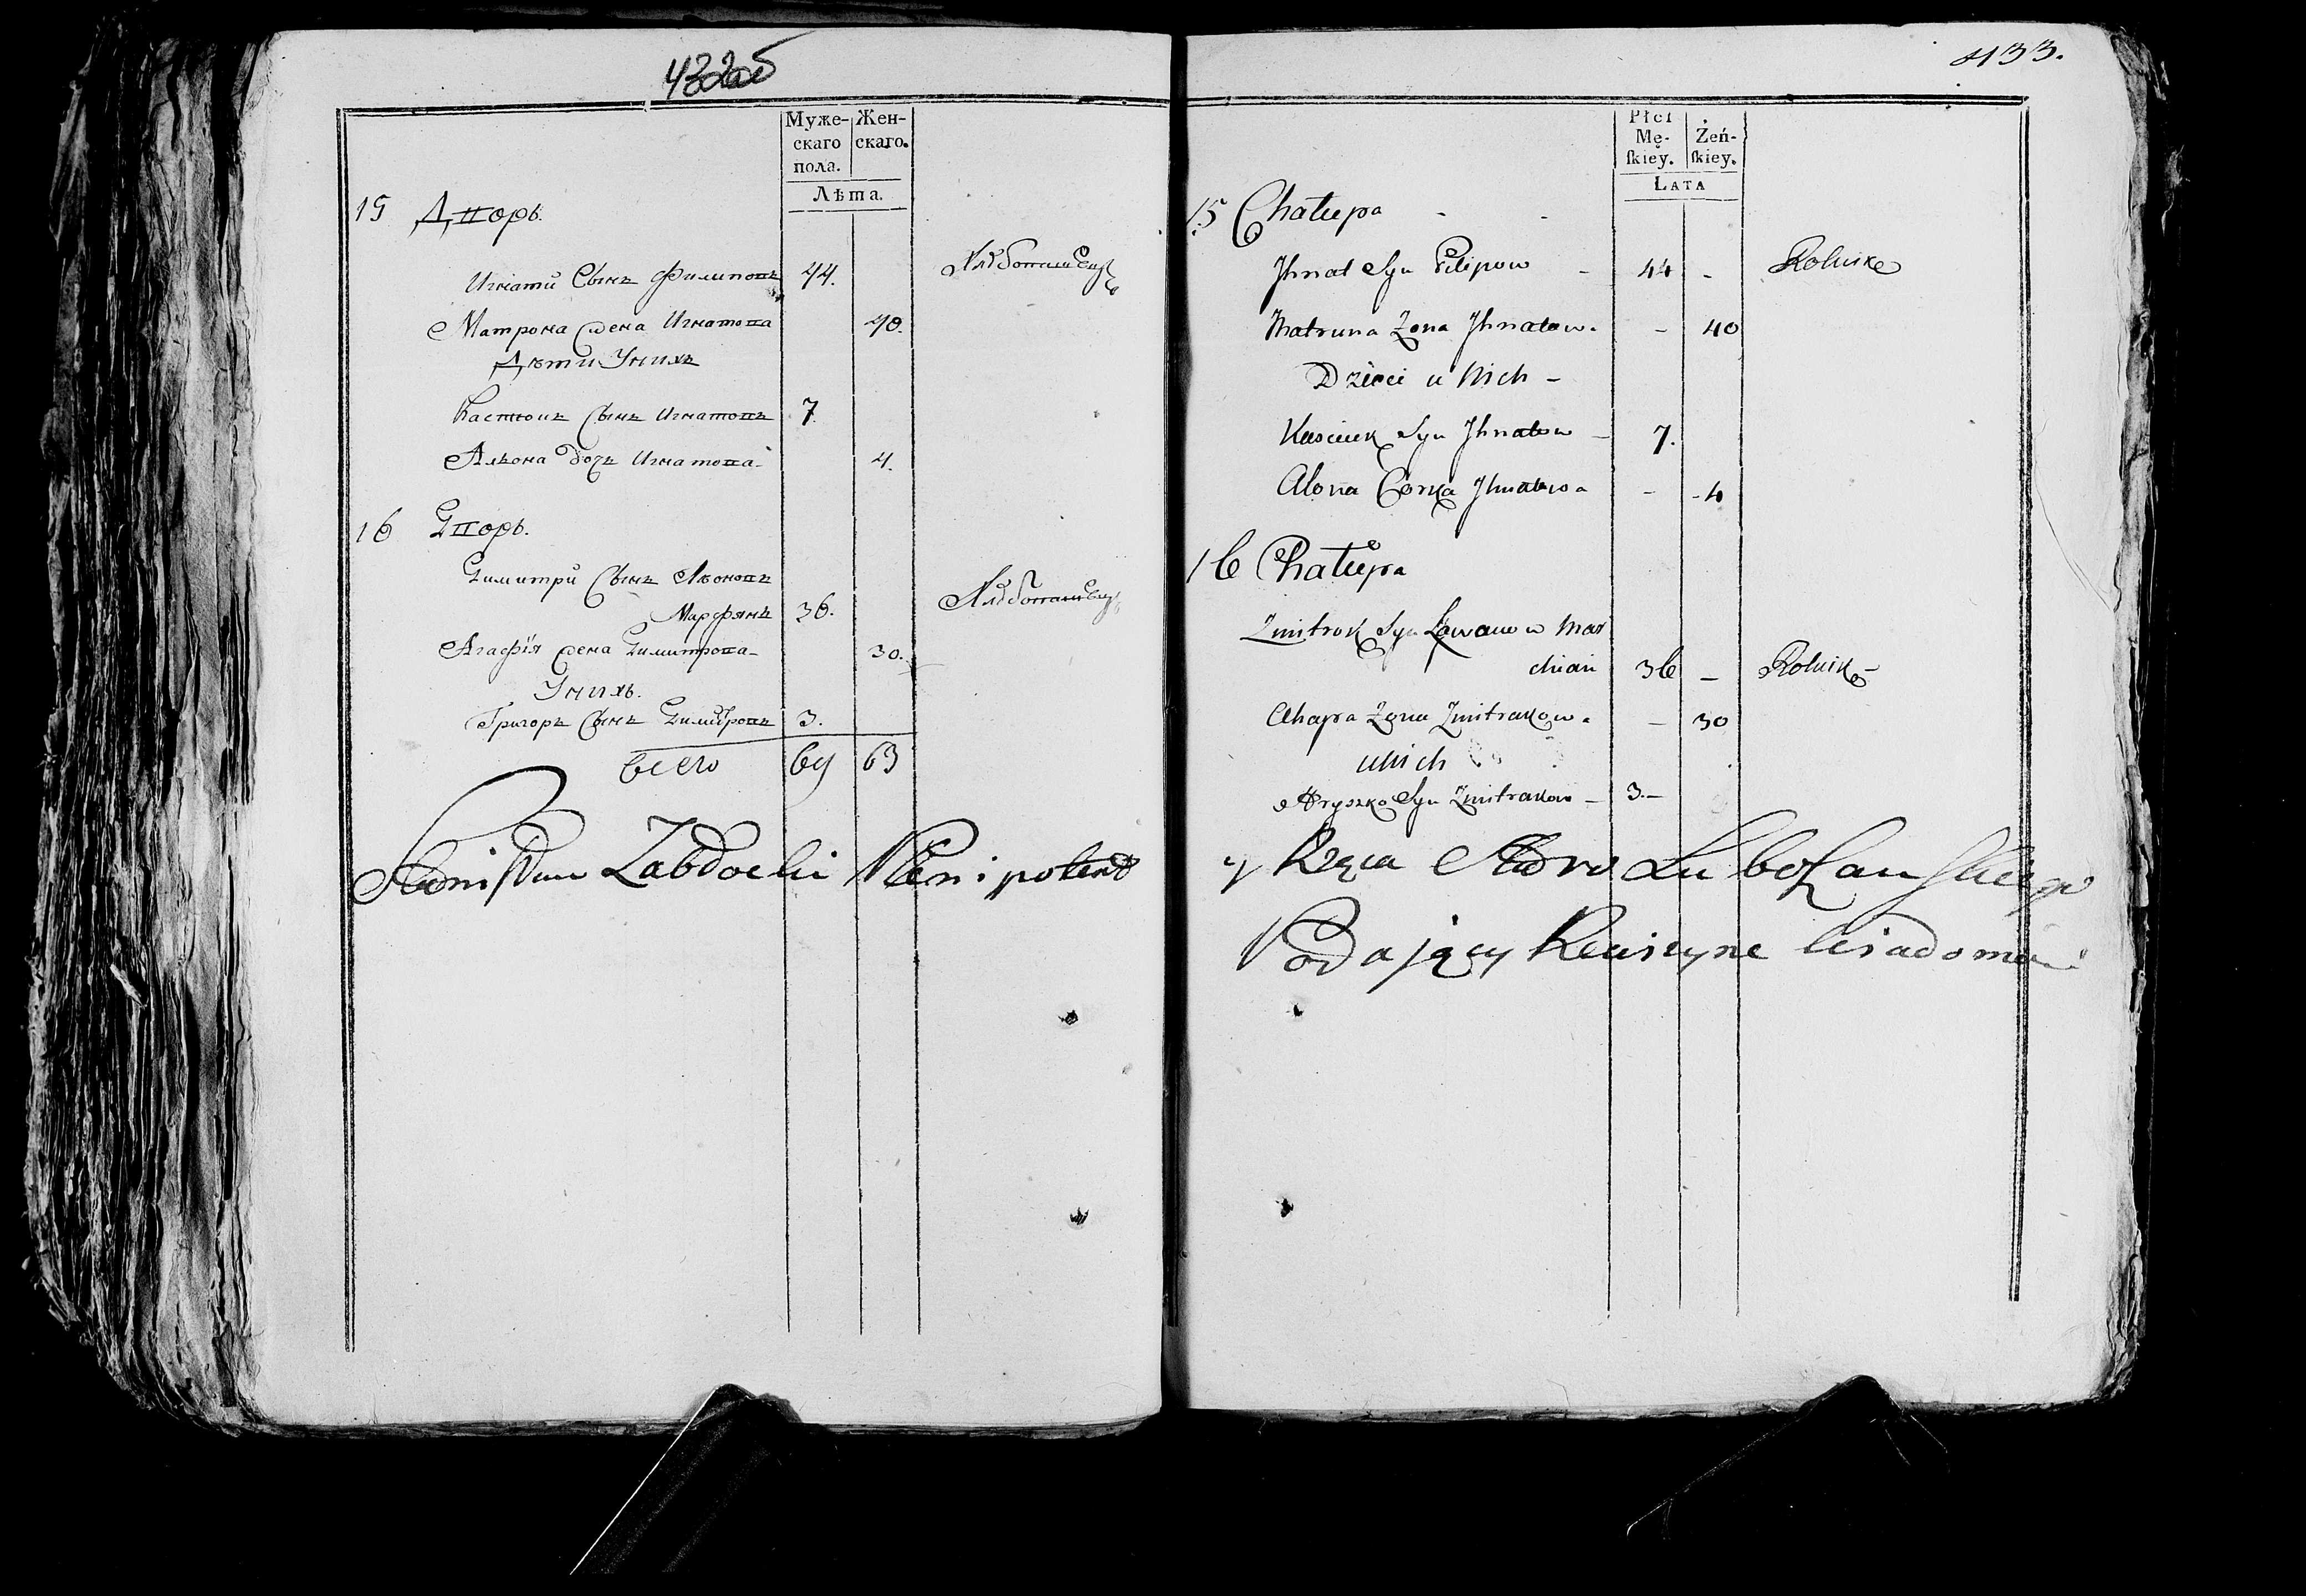 432об
Муже-
скаго
пола.
Жен-
скаго.
Лѣта.
15 Дворъ.
Игнатій Сынъ Филиповъ 44. Хлѣбопашецъ
Матрона жена Игнатова 40.
Дѣти У нихъ
Кастюкъ Сынъ Игнатовъ 7.
Алѣона дочь Игнатова 4.
16 Дворъ.
Димитрій Сынъ Леоновъ
36. Хлѣбопашецъ
Агафія жена Димитрова 30.
У нихъ.
Григоръ Сынъ Димитровъ 3.
всего 69 63
Plenipotent
433.
Płci
Mę-
ſkiey.
Żeń-
ſkiey.
LATA
15 Chałupa
Jhnat Syn Filipow - 44 - Rolnik
Matruna Żona Jhnatowa - 40
Dzieci u Nich -
Kasciuk Syn Jhnatow - 7.
Alona Corka Jhnatowa - - 4
16 Chałupa
Zmitrok Syn Mar
chian 36 - Rolnik -
Ahapa Żona Zmitrakowa - 30
u Nich
Hryszko Syn Zmitrakow - 3. -
y Rządca
Podający Rewizyne